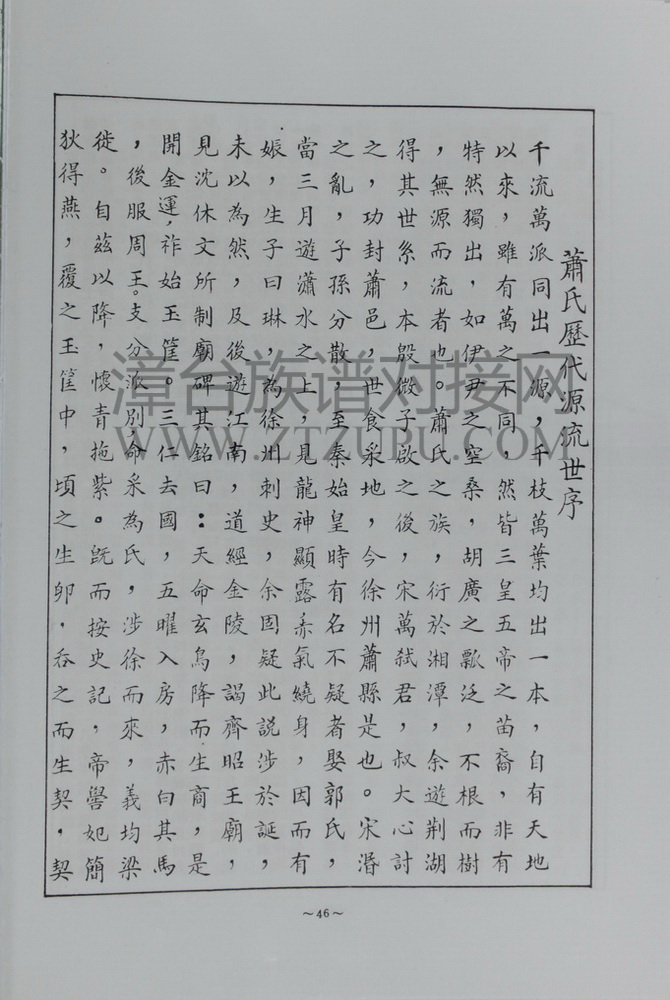 蕭氏歷代源流世序
千流萬派同出一源，千枝萬葉均出一本，自有天地
以來，雖有萬之不同，然皆三皇五帝之苗裔，非有
特然獨出，如伊尹之空桑，胡廣之飄泛，不根而樹
，無源而流者也。蕭氏之族，衍於湘潭，余遊荆湖
得其世系，本殷微子啟之後，宋萬弒君，叔大心討
之，功封蕭邑，世食采地，今徐州蕭縣是也。宋湣
之亂，子孫分散，至秦始皇時有名不疑者娶郭氏，
當三月遊瀟水之上，見龍神顯露赤氣繞身，因而有
娠，生子曰琳，為徐州刺史，余固疑此説涉於誕，
未以為然，及後遊江南，道經金陵，謁齊昭王廟，
見沈休文所制廟碑其銘曰：天命玄鳥降而生商，是
開金運，祚始玉筐。三仁去國，五曜入房，赤白其馬
，後服周王。支分派別，命采為氏，涉徐而來，義均梁
徙。自茲以降，懷青拖紫。既而按史記，帝嚳妃簡
狄得燕，覆之玉筐中，頃之生卵，吞之而生契，契
~46~
漳台族谱对接网
WWW.ZTZUPU.COM